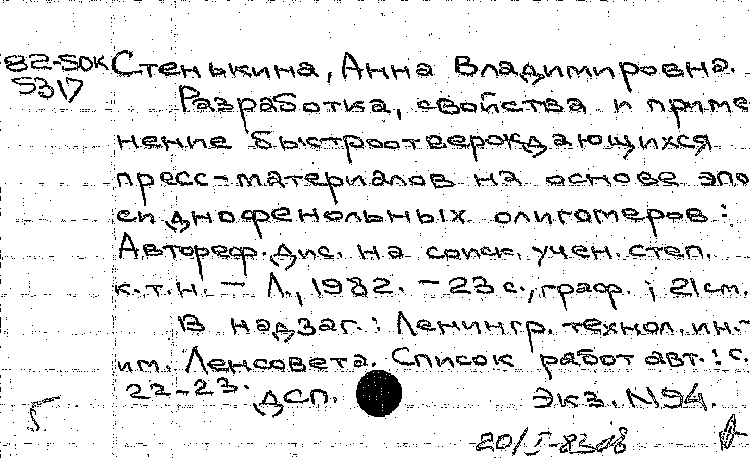 82-5ок Стенькина, Анна Владимировна.
531 Разработка, свойства и приме
нение быстроотверждающихся
пресс-материалов на основе эпо
си днофенольных олигомеров:
Автореф. дис. на соиск. учен. степ.
к.т.н. - Л., 1982. - 23 с., граф. ; 21 см.
В надзаг.: Ленингр. технол. ин.-
им. Ленсовета. Список работ авт.: с.
22-23. ДСП. Экз. N94.
5
20/I-83